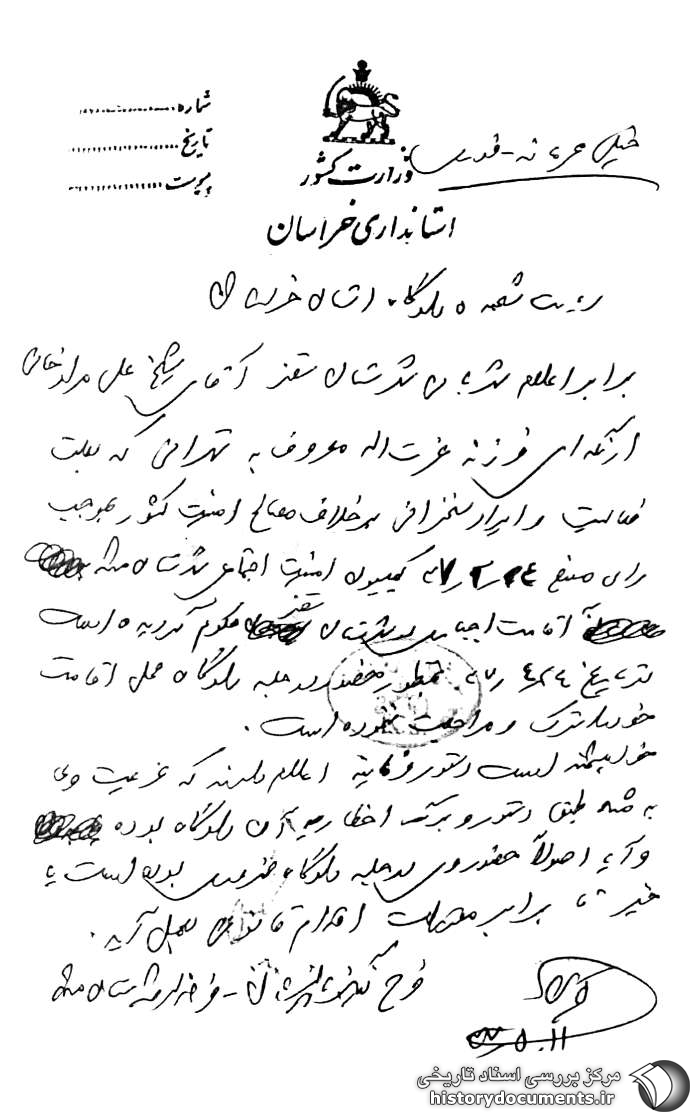 شماره
تاریخ
پیوست
خیلی محرمانه - فوری
وزارت کشور
استانداری خراسان
ریاست شعبه ۵ دادگاه استان خراسان
برابر اعلام شهربانی شهرستان سقز آقای شیخ علی مرادخانی
ارنگه‌ای فرزند عزت‌اله معروف به تهرانی که بعلت
فعالیت و ایراد سخنرانی برخلاف مصالح امنیت کشور بموجب
رای کمیسیون امنیت اجتماعی شهرستان مشهد
اقامت اجباری در شهرستان سقز محکوم گردیده است
بتاریخ بمنظور حضور در جلسه دادگاه محل اقامت
خود را ترک و مراجعت ننموده است.
خواهشمند است دستور فرمایید اعلام دارند که عزیمت وی
به مشهد طبق دستور و برگ اخطاریه آن دادگاه بوده
و آیا اصولاً حضور وی در جلسه دادگاه ضروری بوده است یا
خیر تا برابر مقررات اقدام قانونی بعمل آید.
مرکز بررسی اسناد تاریخی
historydocuments.ir